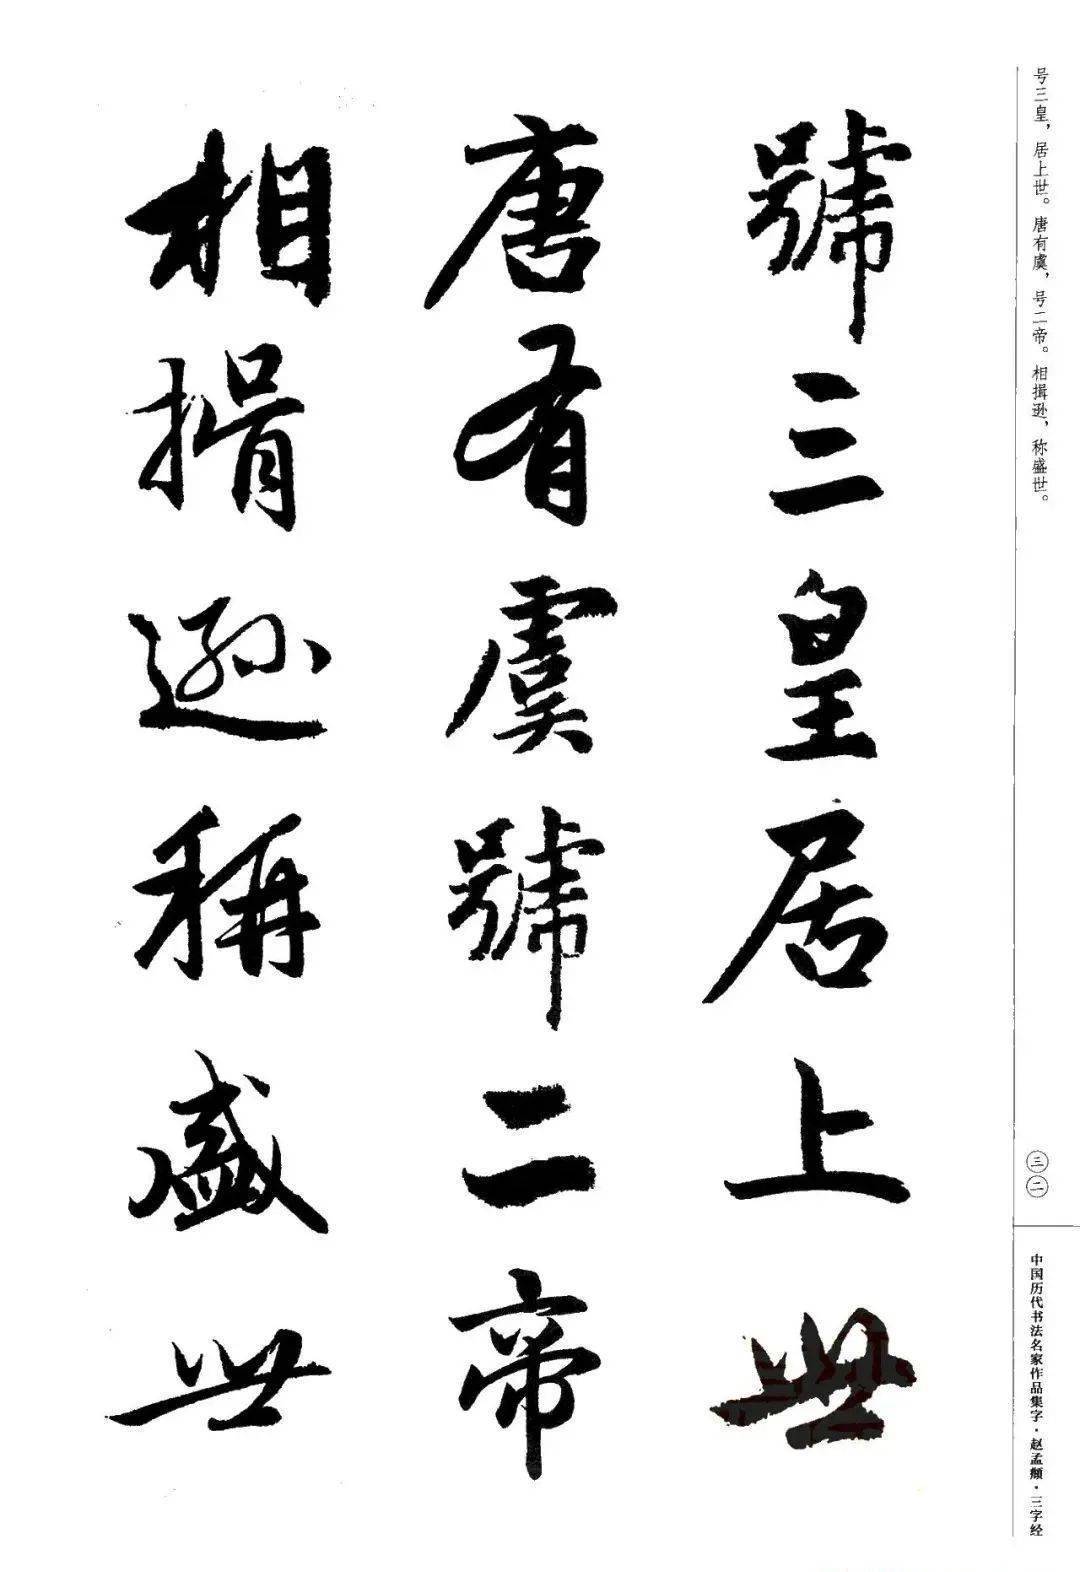 号三皇，居上世。唐有虞，号二帝。相揖逊，称盛世。
號三皇居上世
唐有虞號二帝
相揖遜稱盛世
三二
中国历代书法名家作品集字·赵孟頫·三字经